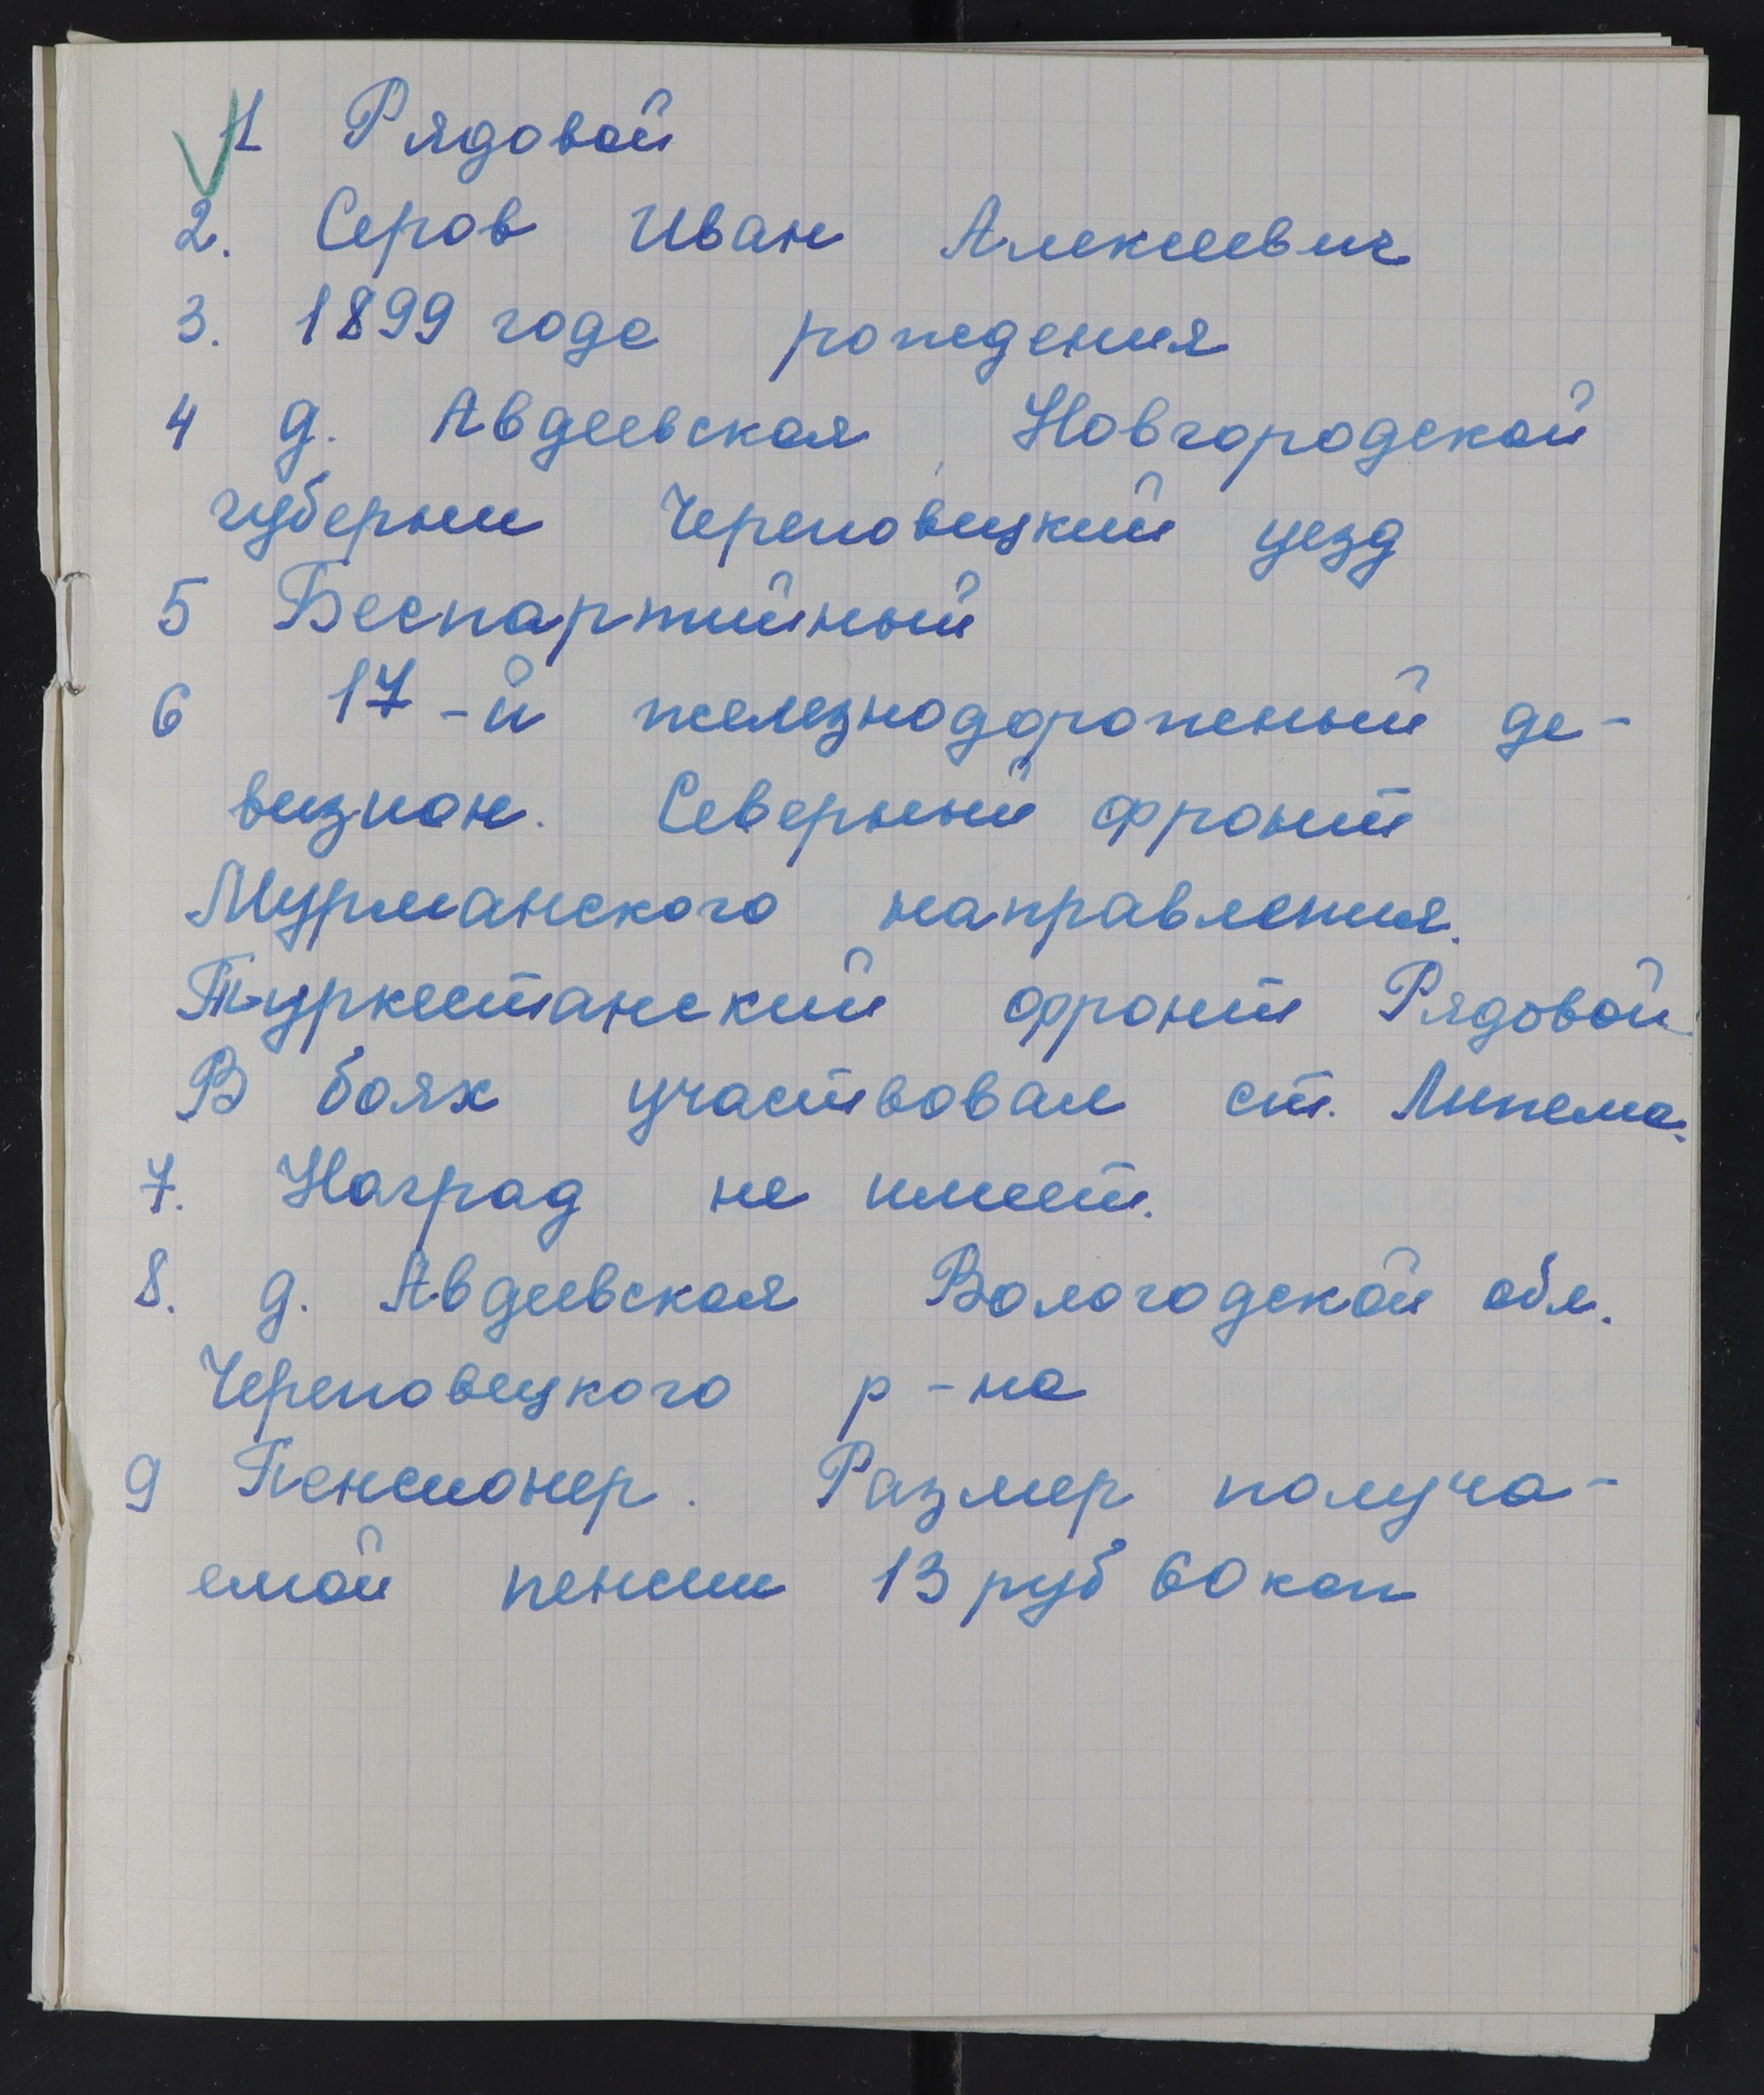 1 Рядовой
2. Серов Иван Алексеевич
3. 1899 года рождения
4 д. Авдеевская Новгородской
губернии Череповецкий уезд
5 Беспартийный
6 17-й железнодорожный де-
визион. Северный фронт
Мурманского направления.
Туркестанский фронт Рядовой
В боях участвовал ст.
7. Наград не имеет.
8. д. Авдеевская Вологодской обл.
Череповецкого р-на
9 Пенсионер. Размер получа-
емой пенсии 13 руб 60 коп